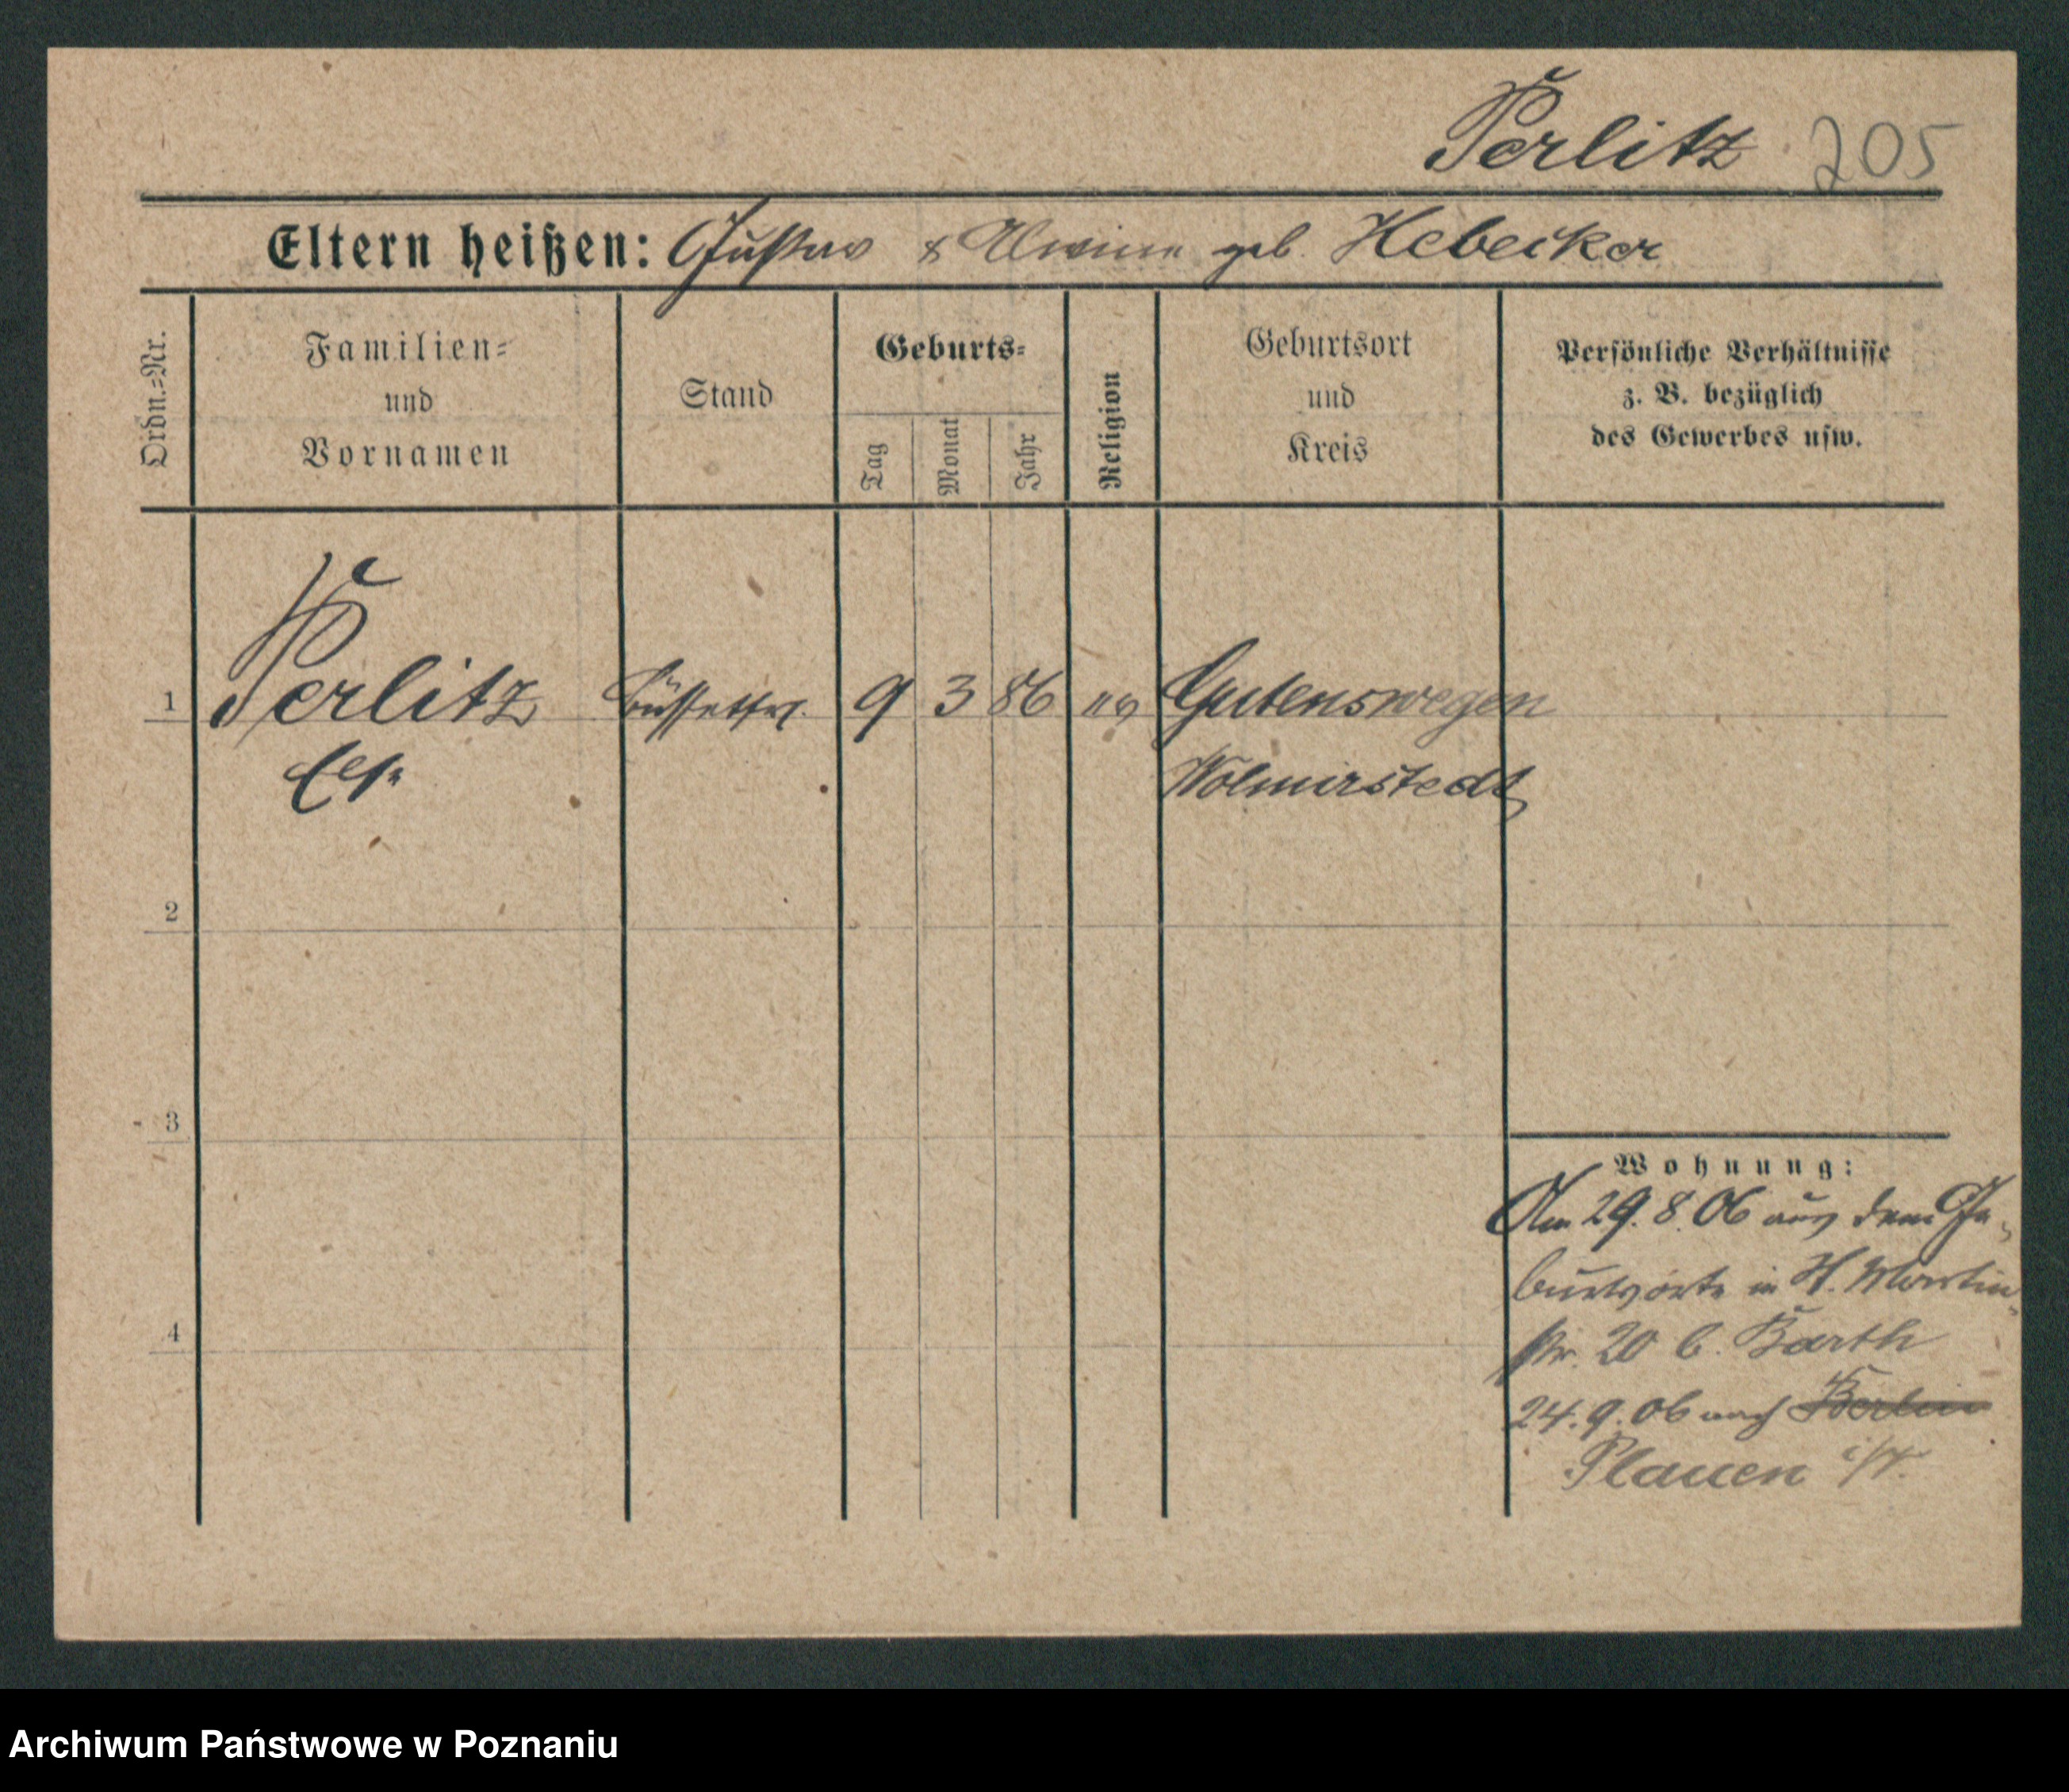 Perlitz 205
Eltern heißen: Gustav & Alwine geb. Hebecker
Ordn.=Nr.
Familien=
und
Vornamen
Stand
Geburts=
Tag
Monat
Jahr
Religion
Geburtsort
und
Kreis
Persönliche Verhältnisse
z. B. bezüglich
des Gewerbes usw.
1 Perlitz 9 3 86 ev Gutenswegen
Else Wolmirstedt
2
3
4
Wohnung:
Am 29.8.06 aus dem Ge-
burtsorte in St. Martin-
str. 20 b. Barth
24.9.06 nach Berlin
Plauen i/V.
Archiwum Państwowe w Poznaniu